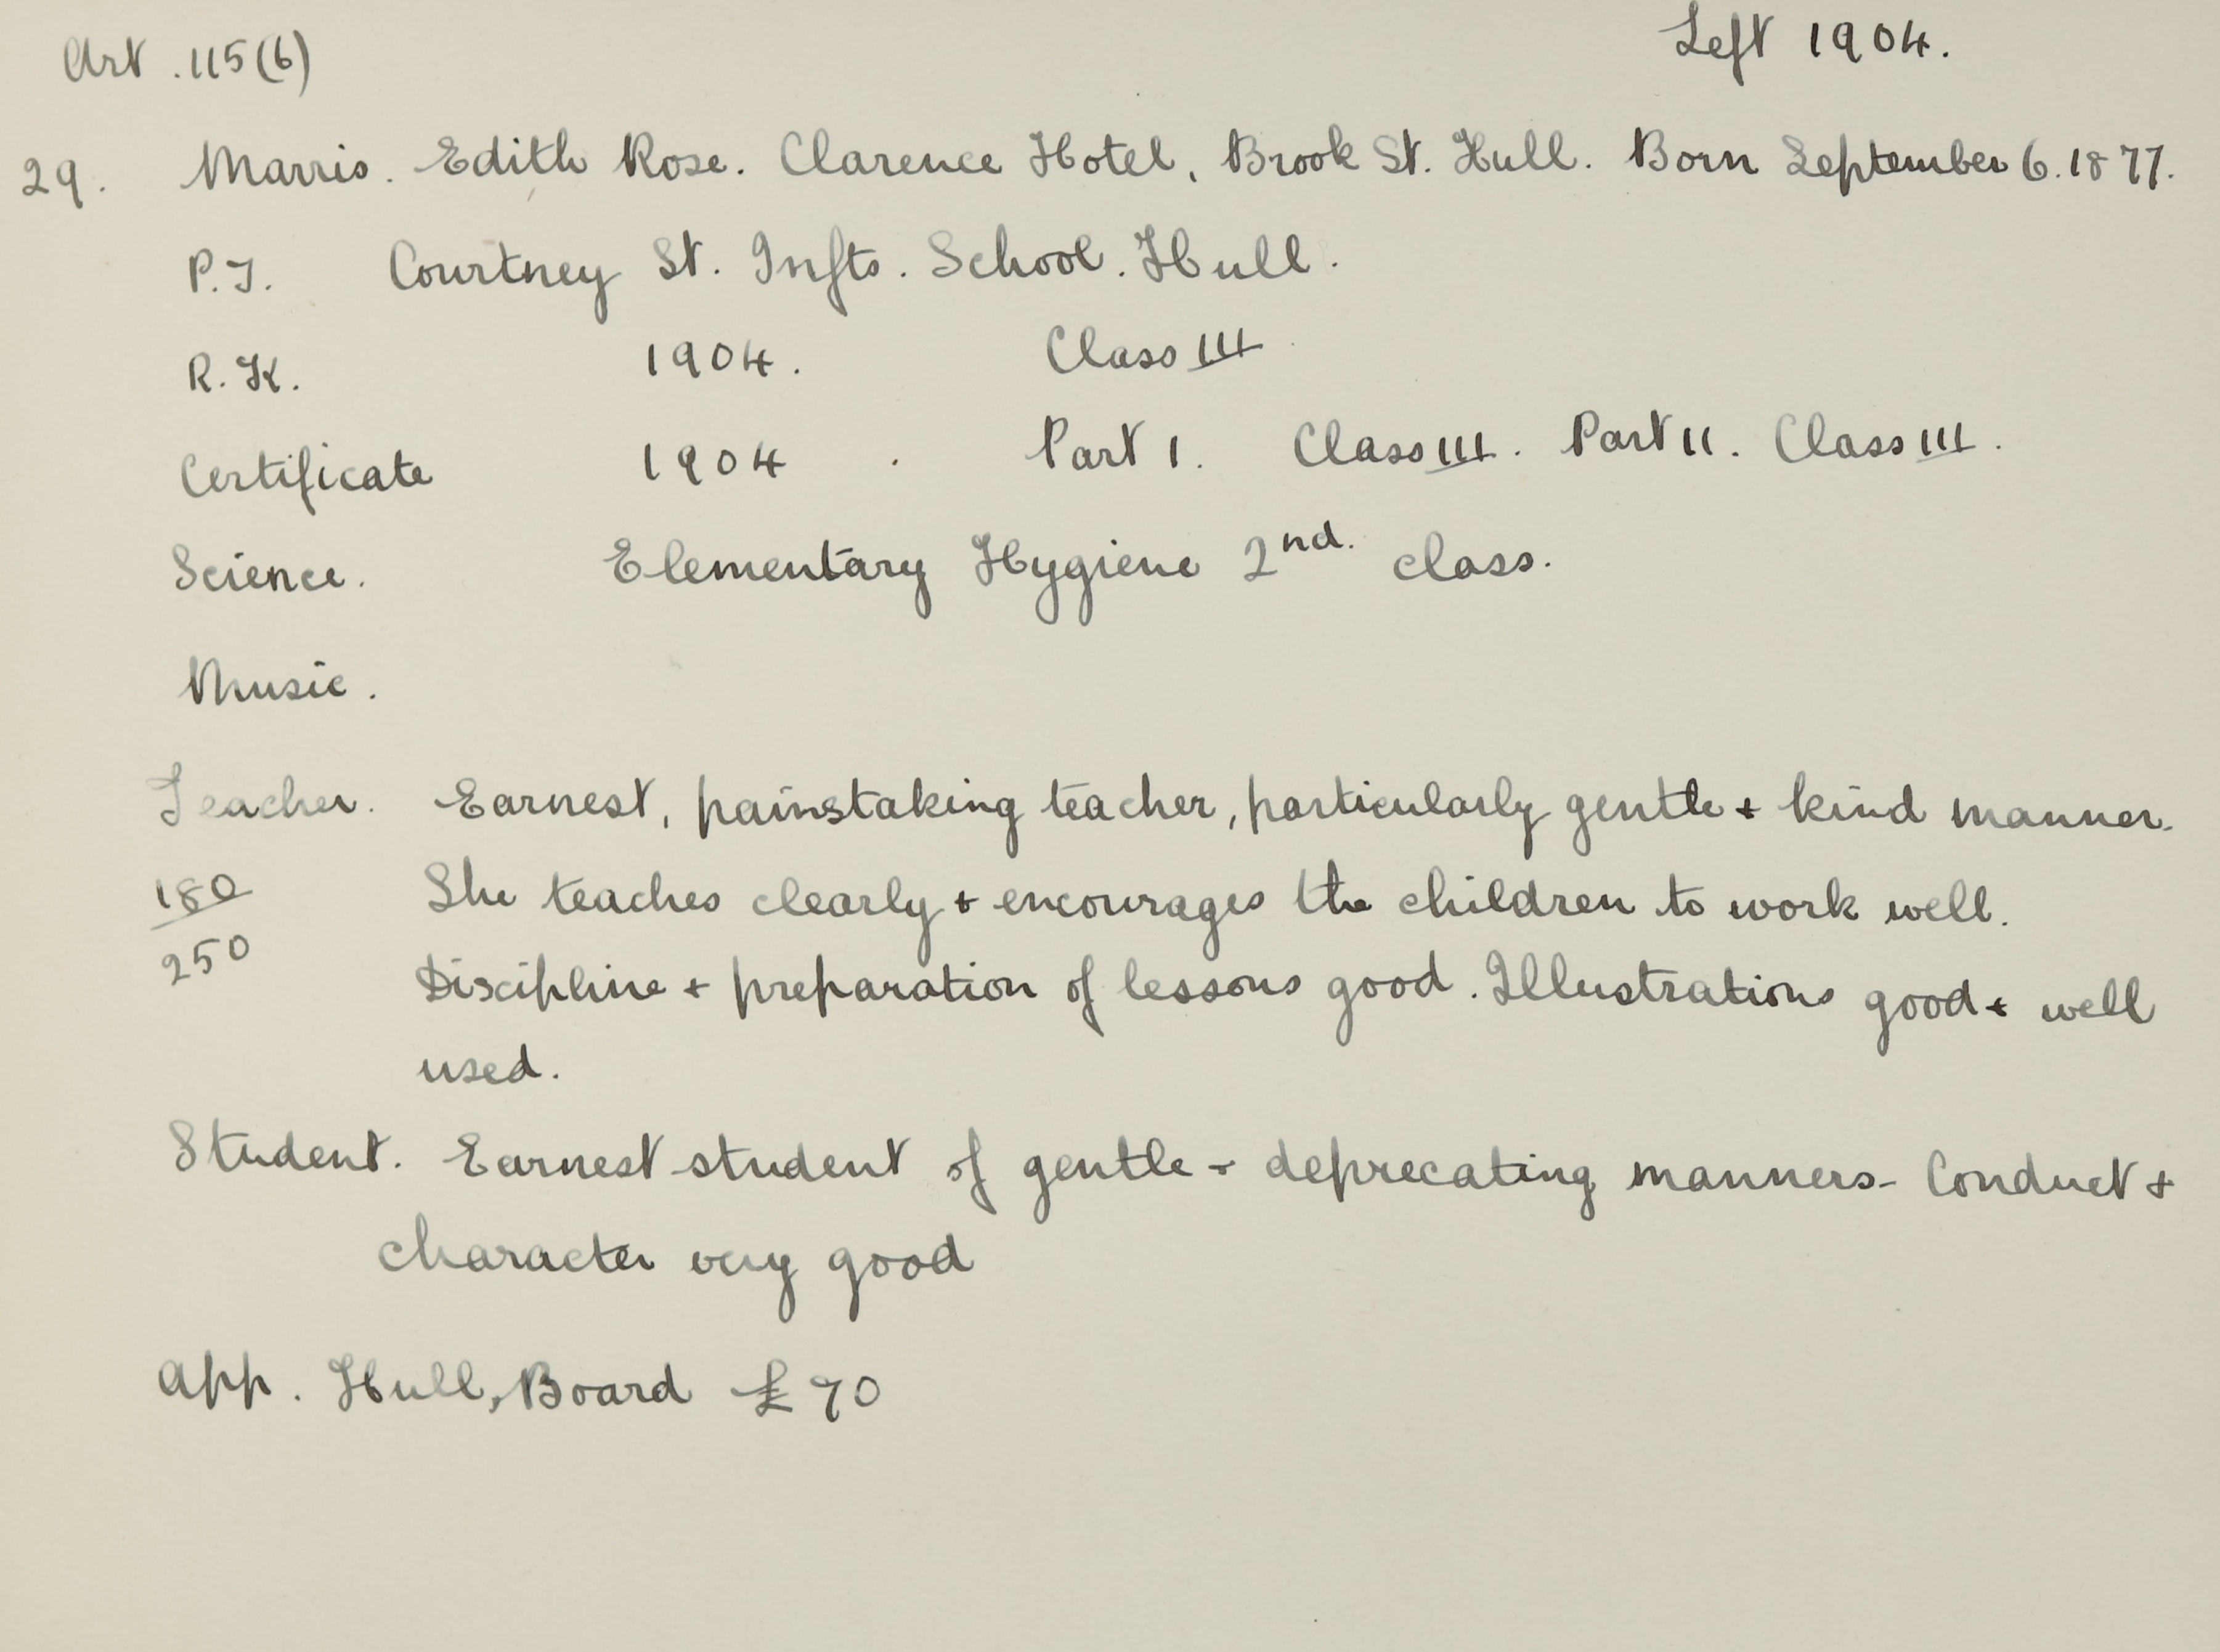 Art. 115(b) Left 1904.
29. Marris. Edith Rose. Clarence Hotel, Brook St. Hull. Born September 6. 1877.
P.T. Courtney St. Infts. School. Hull.
R.K. 1904. Class III
Certificate 1904. Part I. Class III. Part II. Class III.
Science. Elementary Hygiene 2nd. class.
Music.
Teacher. Earnest, painstaking teacher, particularly gentle + kind manner.
180 She teaches clearly + encourages the children to work well.
250 Discipline + preparation of lessons good. Illustrations good + well
used.
Student. Earnest student of gentle + deprecating manners - Conduct +
character very good
App. Hull, Board £70